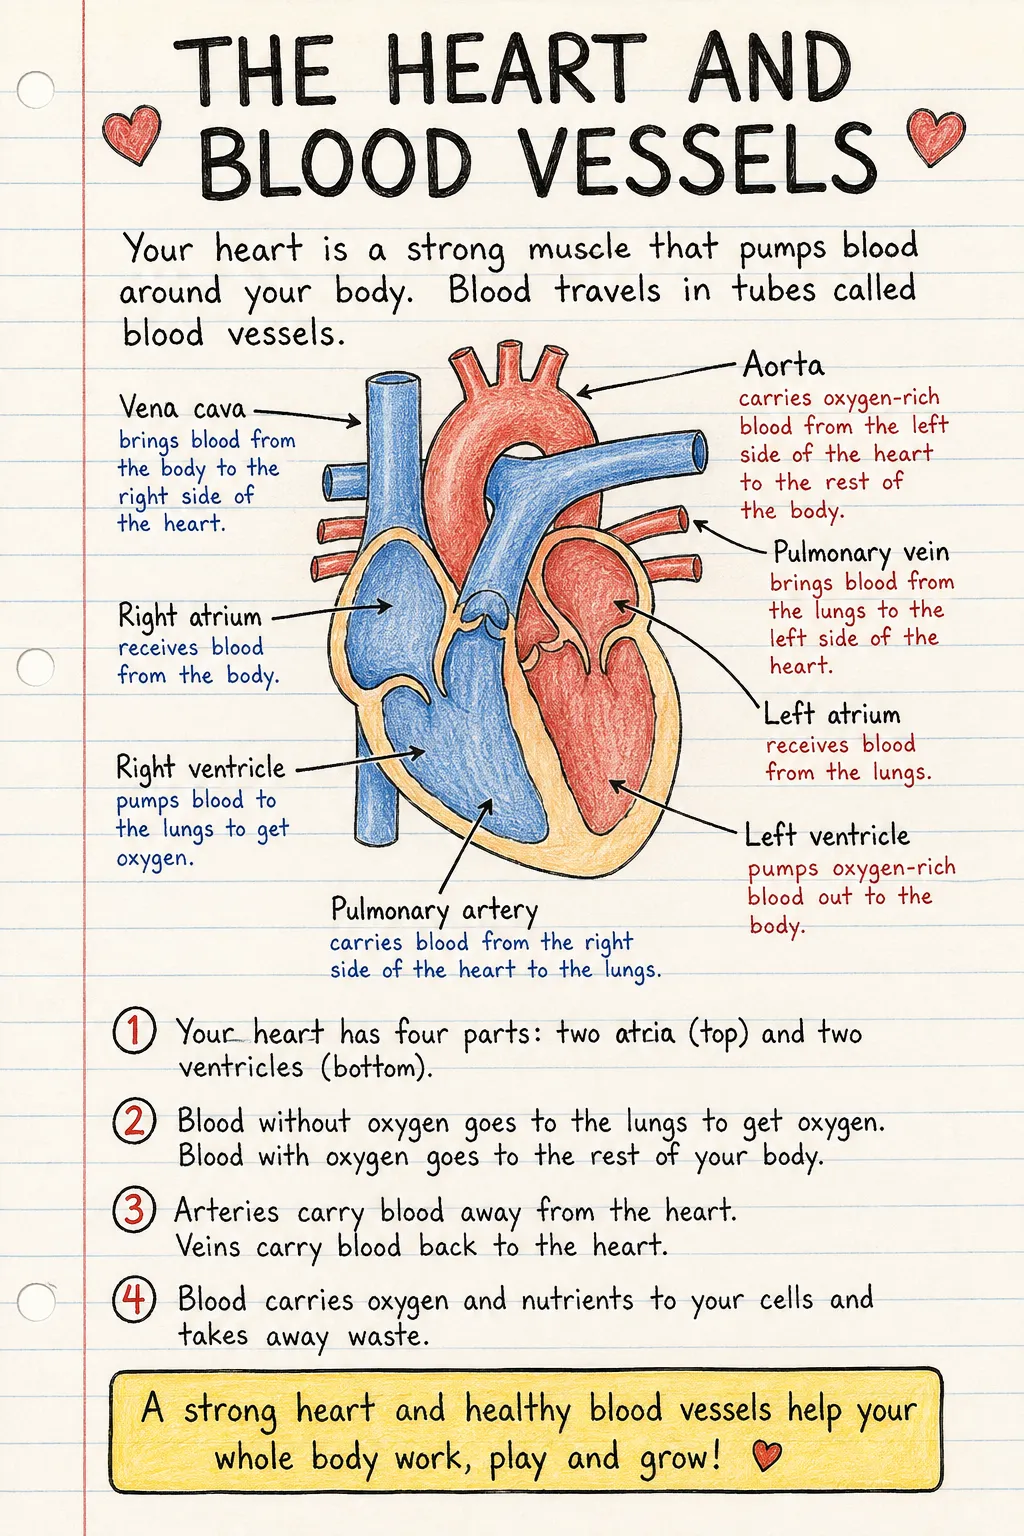 THE HEART AND
BLOOD VESSELS
Your heart is a strong muscle that pumps blood
around your body. Blood travels in tubes called
blood vessels.
Vena cava
brings blood from
the body to the
right side of
the heart.
Right atrium
receives blood
from the body.
Right ventricle
pumps blood to
the lungs to get
oxygen.
Aorta
carries oxygen-rich
blood from the left
side of the heart
to the rest of
the body.
Pulmonary vein
brings blood from
the lungs to the
left side of the
heart.
Left atrium
receives blood
from the lungs.
Left ventricle
pumps oxygen-rich
blood out to the
body.
Pulmonary artery
carries blood from the right
side of the heart to the lungs.
1 Your heart has four parts: two atria (top) and two
ventricles (bottom).
2 Blood without oxygen goes to the lungs to get oxygen.
Blood with oxygen goes to the rest of your body.
3 Arteries carry blood away from the heart.
Veins carry blood back to the heart.
4 Blood carries oxygen and nutrients to your cells and
takes away waste.
A strong heart and healthy blood vessels help your
whole body work, play and grow!